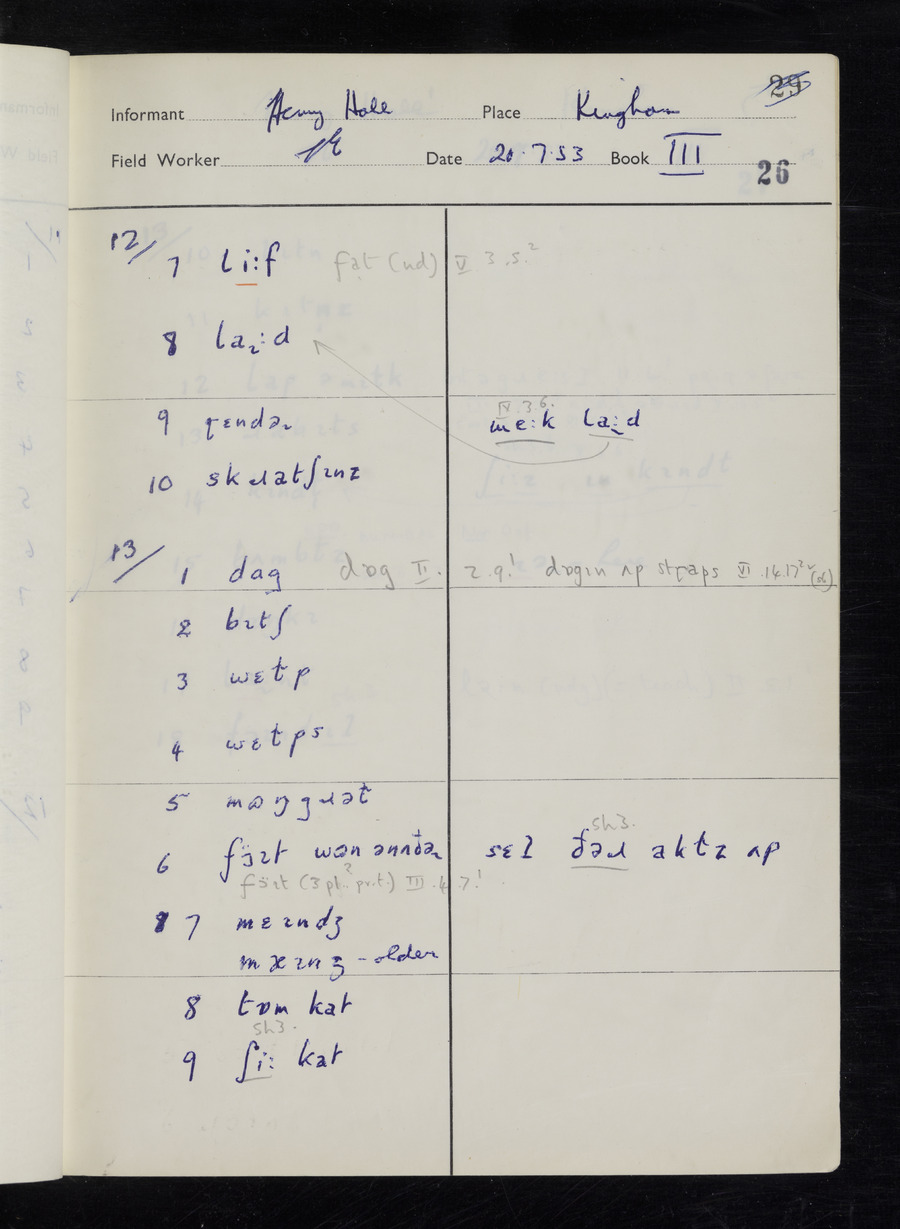 Informant Henry Hall Place Kingham 25
Field Worker Date 20.7.53 Book III
26
12/ 7 li:f fat (nd) V 3.5.²
8 laɪ:d
9 rɛndəɹ
IV.3.6.
me:k laɪ:d
10 skɹatʃɪnz
13/ 1 dɑg dɒg II. 2.9.¹ dɒgɪn ʌp stɽaps VI.14.17²
2 bɪtʃ
3 wɛɫp
4 wɛɫps
5 mɒŋgɹəɫ
sh3.
6 fɔ̈ɪt wən ənʌðəɹ sɛz ðəɹ aktɪ ʌp
fɔ̈ɪt (3 pl. pr.t.)² III.4.7.¹
7 mɛɪndʒ
mæɪnʒ - older
8 tɒm kat
sh3.
9 ʃi: kat